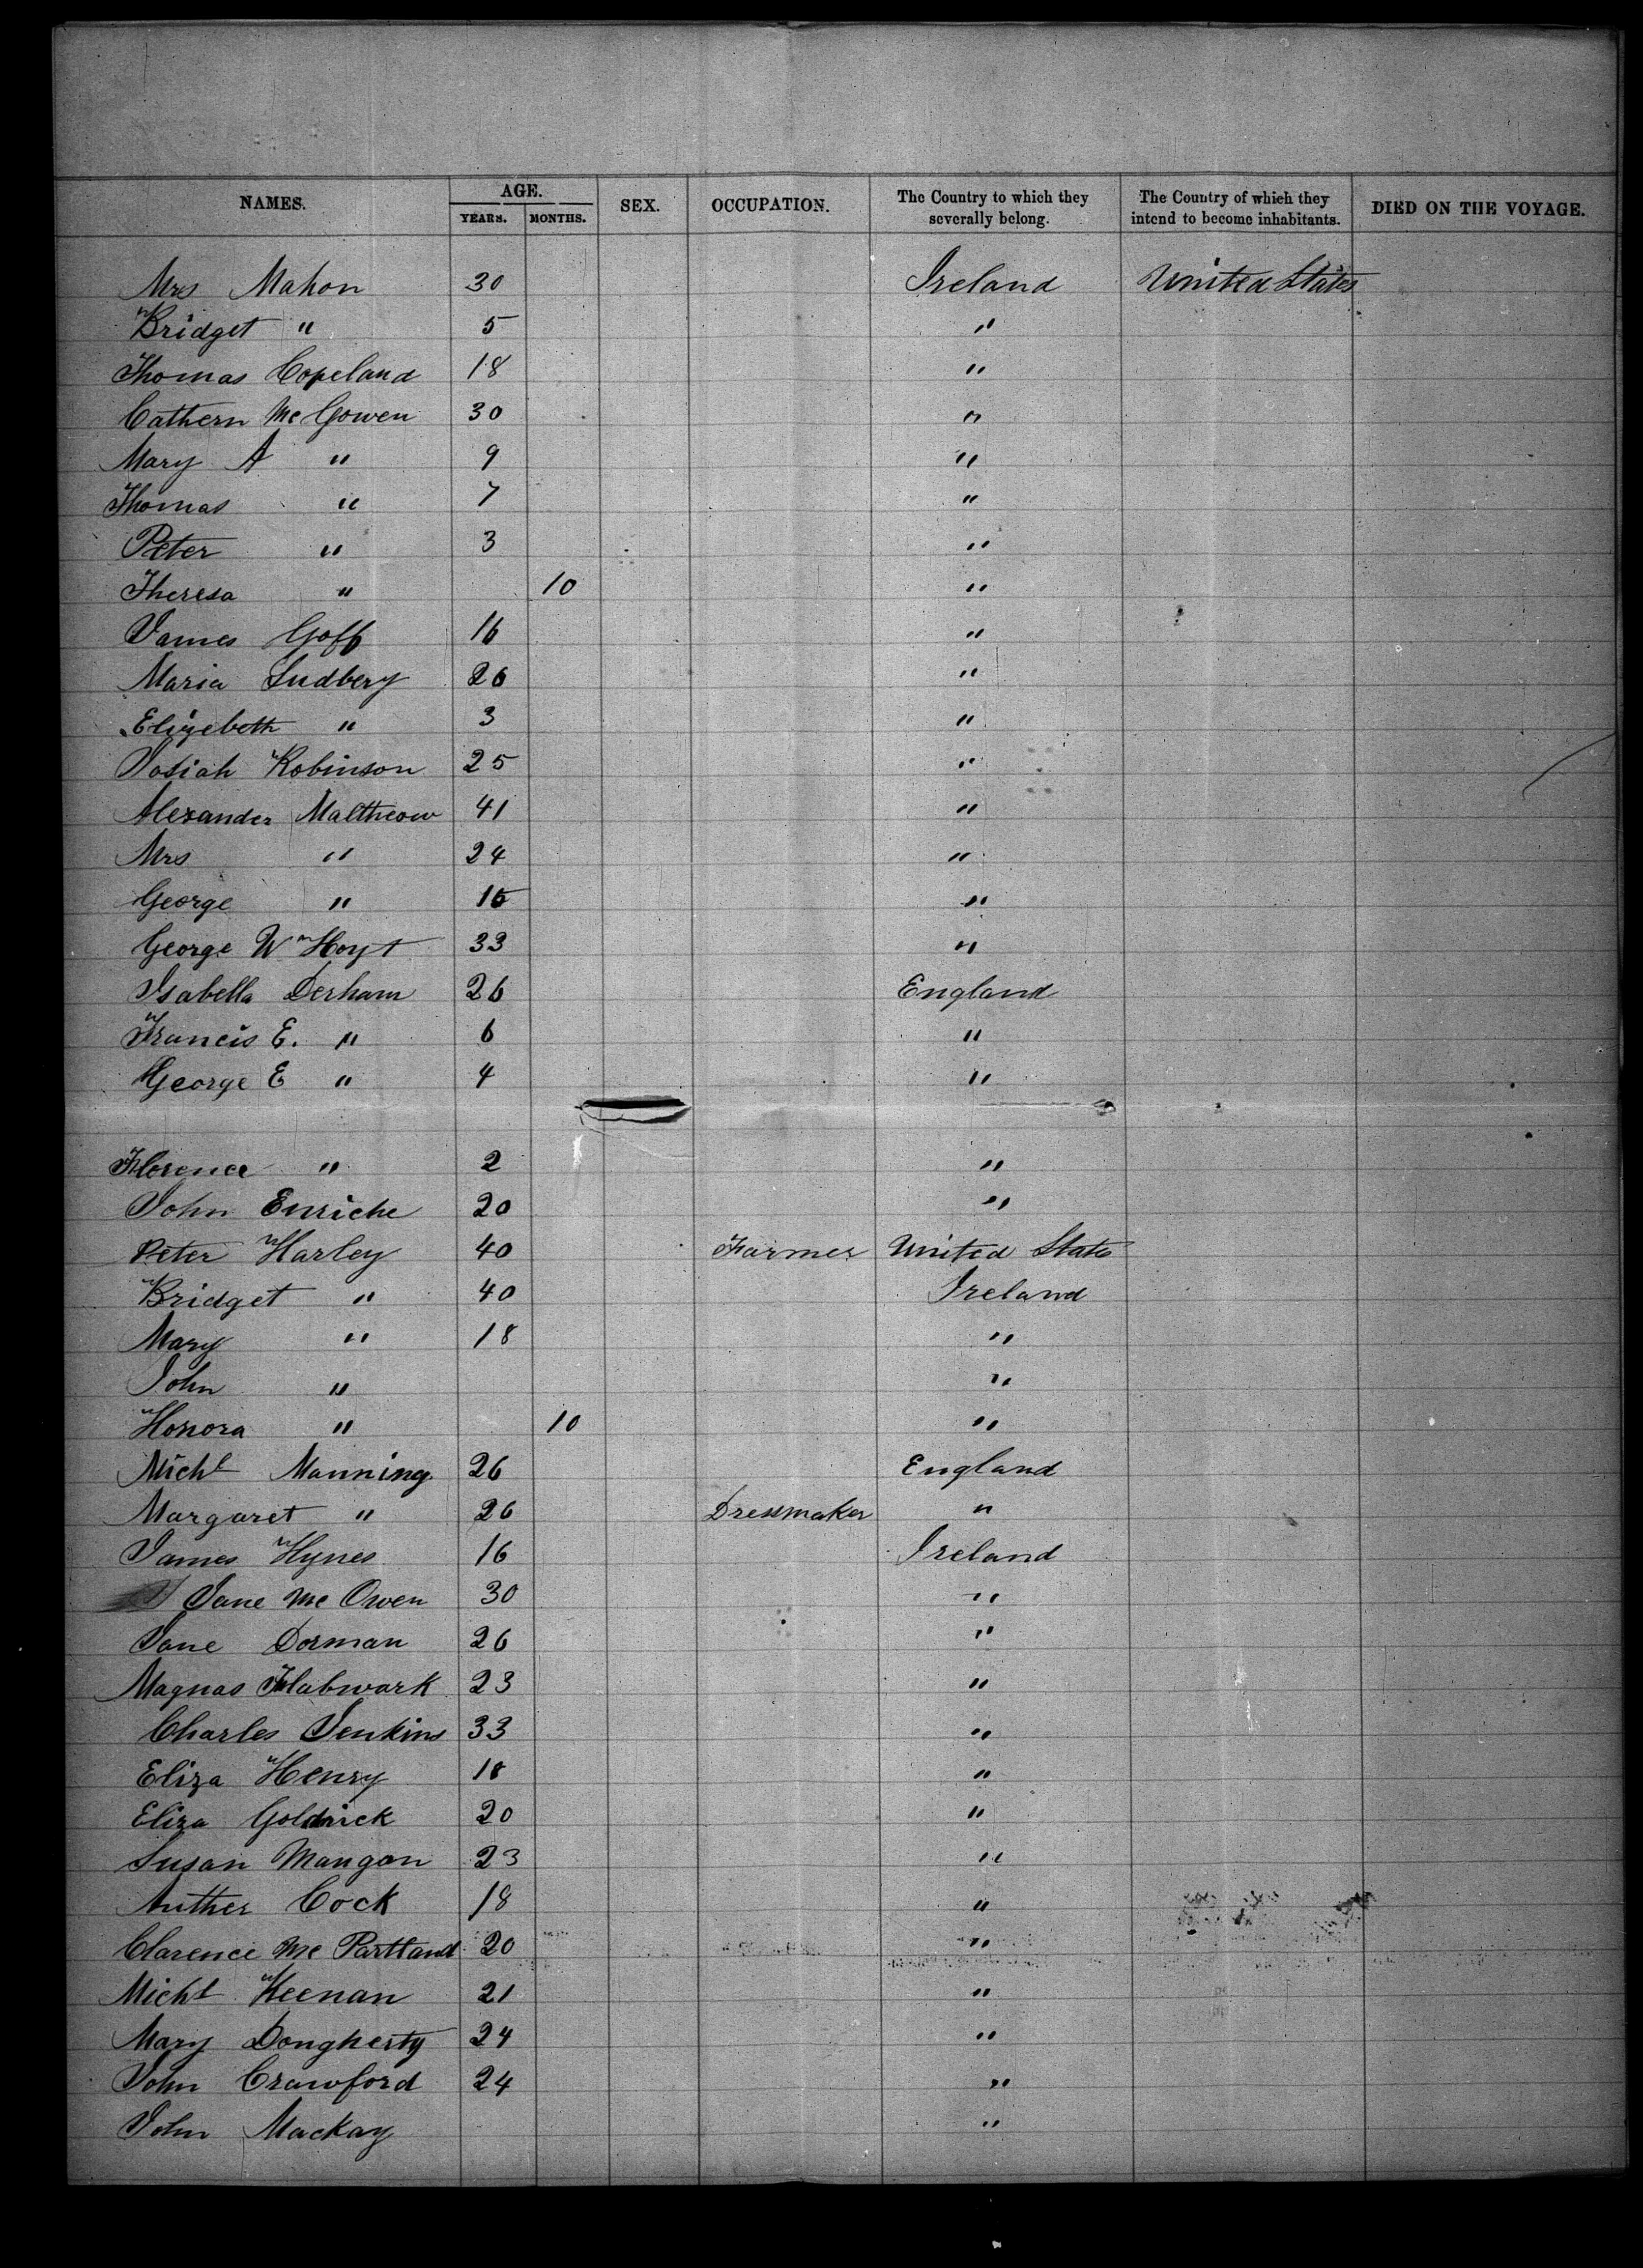 NAMES. AGE. YEARS. MONTHS. SEX. OCCUPATION. The Country to which they severally belong. The Country of which they intend to become inhabitants. DIED ON THE VOYAGE.
Mrs Mahon 30 Ireland United States
Bridget " 5 "
Thomas Copeland 18 "
Cathern Mc Gowen 30 "
Mary A " 9 "
Thomas " 7 "
Peter " 3 "
Theresa " 10 "
James Goff 16 "
Maria Sudbery 26 "
Elizebeth " 3 "
Josiah Robinson 25 "
Alexander Maltheow 41 "
Mrs " 24 "
George " "
George W Hoyt 33 "
Isabella Derham 26 England
Francis E. " 6 "
George E " 4 "
Florence " 2 "
John Enriche 20 "
Peter Harley 40 Farmer United States
Bridget " 40 Ireland
Mary " 18 "
John " "
Honora " 10 "
Michl Manning 26 England
Margaret " 26 Dressmaker "
James Hynes 16 Ireland
Jane Mc Owen 30 "
Jane Dorman 26 "
Magnas 23 "
Charles Jenkins 33 "
Eliza Henry 18 "
Eliza Goldrick 20 "
Susan Mangan 23 "
Auther Cock 18 "
Clarence Mc Partland 20 "
Michl Keenan 21 "
Mary Dongherty 24 "
John Crawford 24 "
John Mackay "